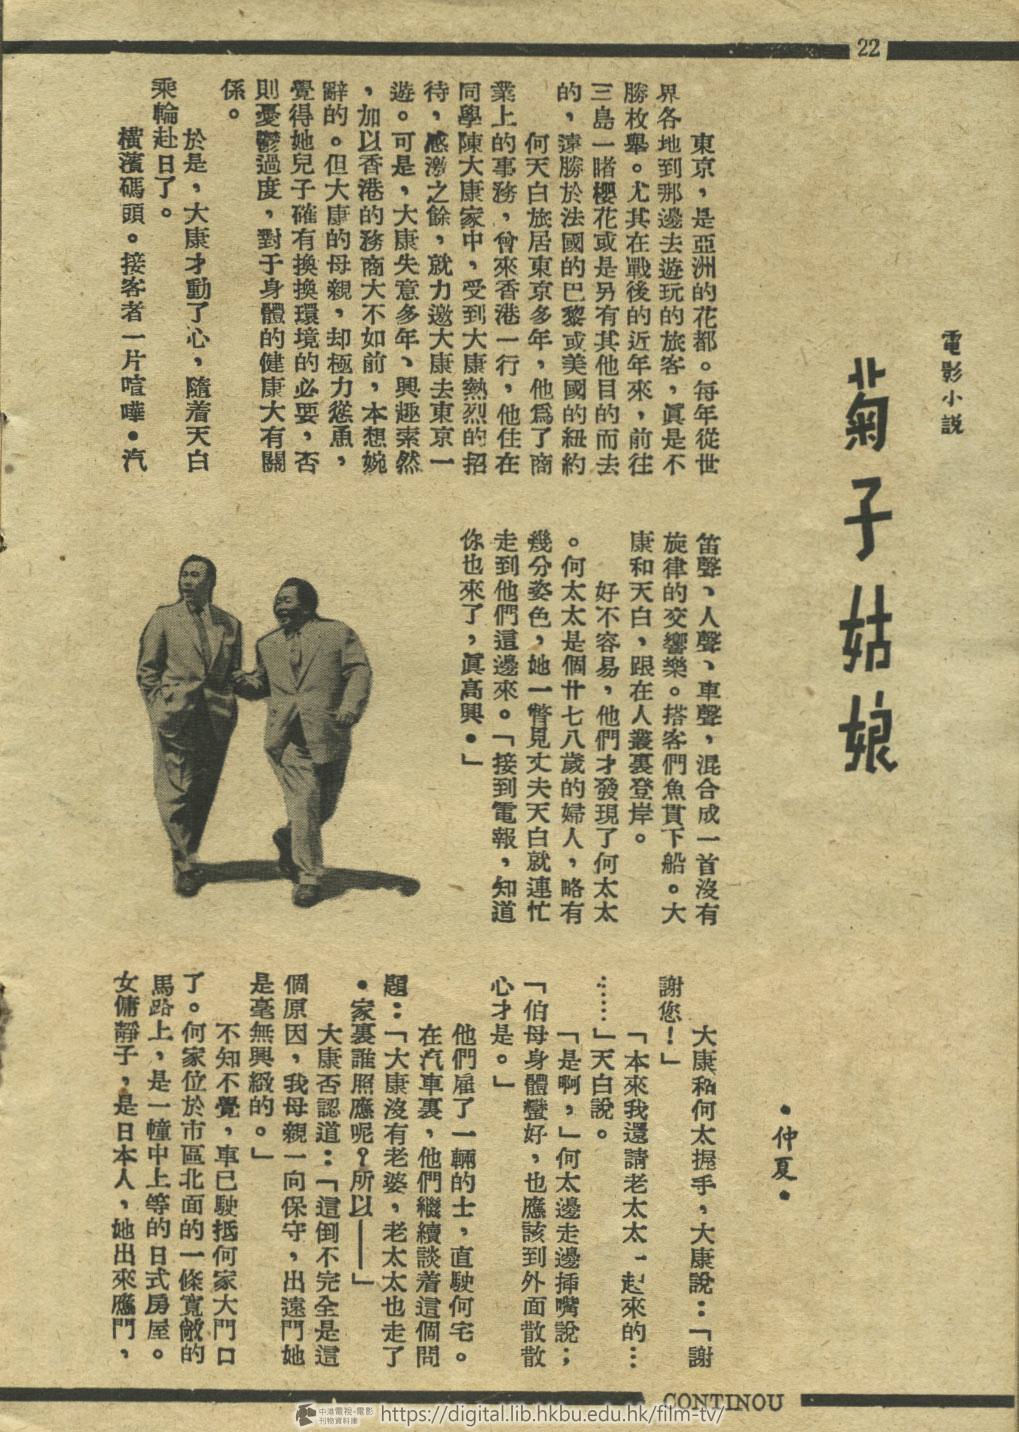 22
電影小説
菊子姑娘
•仲夏•
東京，是亞洲的花都。每年從世
界各地到那邊去遊玩的旅客，眞是不
勝枚舉。尤其在戰後的近年來，前往
三島一睹櫻花或是另有其他目的而去
的，遠勝於法國的巴黎或美國的紐約
何天白旅居東京多年，他爲了商
業上的事務，曾來香港一行，他住在
同學陳大康家中，受到大康熱烈的招
待，感激之餘，就力邀大康去東京一
遊。可是，大康失意多年、興趣索然
，加以香港的務商大不如前，本想婉
辭的。但大康的母親，却極力慫恿，
覺得她兒子確有換換環境的必要，否
則憂鬱過度，對于身體的健康大有關
係。
於是，大康才動了心，隨着天白
乘輪赴日了。
橫濱碼頭。接客者一片喧嘩•汽
笛聲、人聲、車聲，混合成一首沒有
旋律的交響樂。搭客們魚貫下船。大
康和天白，跟在人叢裏登岸。
好不容易，他們才發現了何太太
。何太太是個廿七八歲的婦人，略有
幾分姿色，她一瞥見丈夫天白就連忙
走到他們這邊來。「接到電報，知道
你也來了，眞高興•」
大康和何太握手，大康說：「謝
謝您！」
「本來我還請老太太一起來的…
……」天白說。
「是啊，」何太邊走邊揷嘴說；
「伯母身體蠻好，也應該到外面散散
心才是。」
他們雇了一輛的士，直駛何宅。
在汽車裏，他們繼續談着這個問
題：「大康沒有老婆，老太太也走了
•家裏誰照應呢？所以——」
大康否認道：「這倒不完全是這
個原因，我母親一向保守，出遠門她
是毫無興緻的。」
不知不覺，車已駛抵何家大門口
了。何家位於市區北面的一條寬敞的
馬路上，是一幢中上等的日式房屋。
女傭靜子，是日本人，她出來應門，
CONTINOU
中港電視-電影
刊物資料庫
https://digital.lib.hkbu.edu.hk/film-tv/